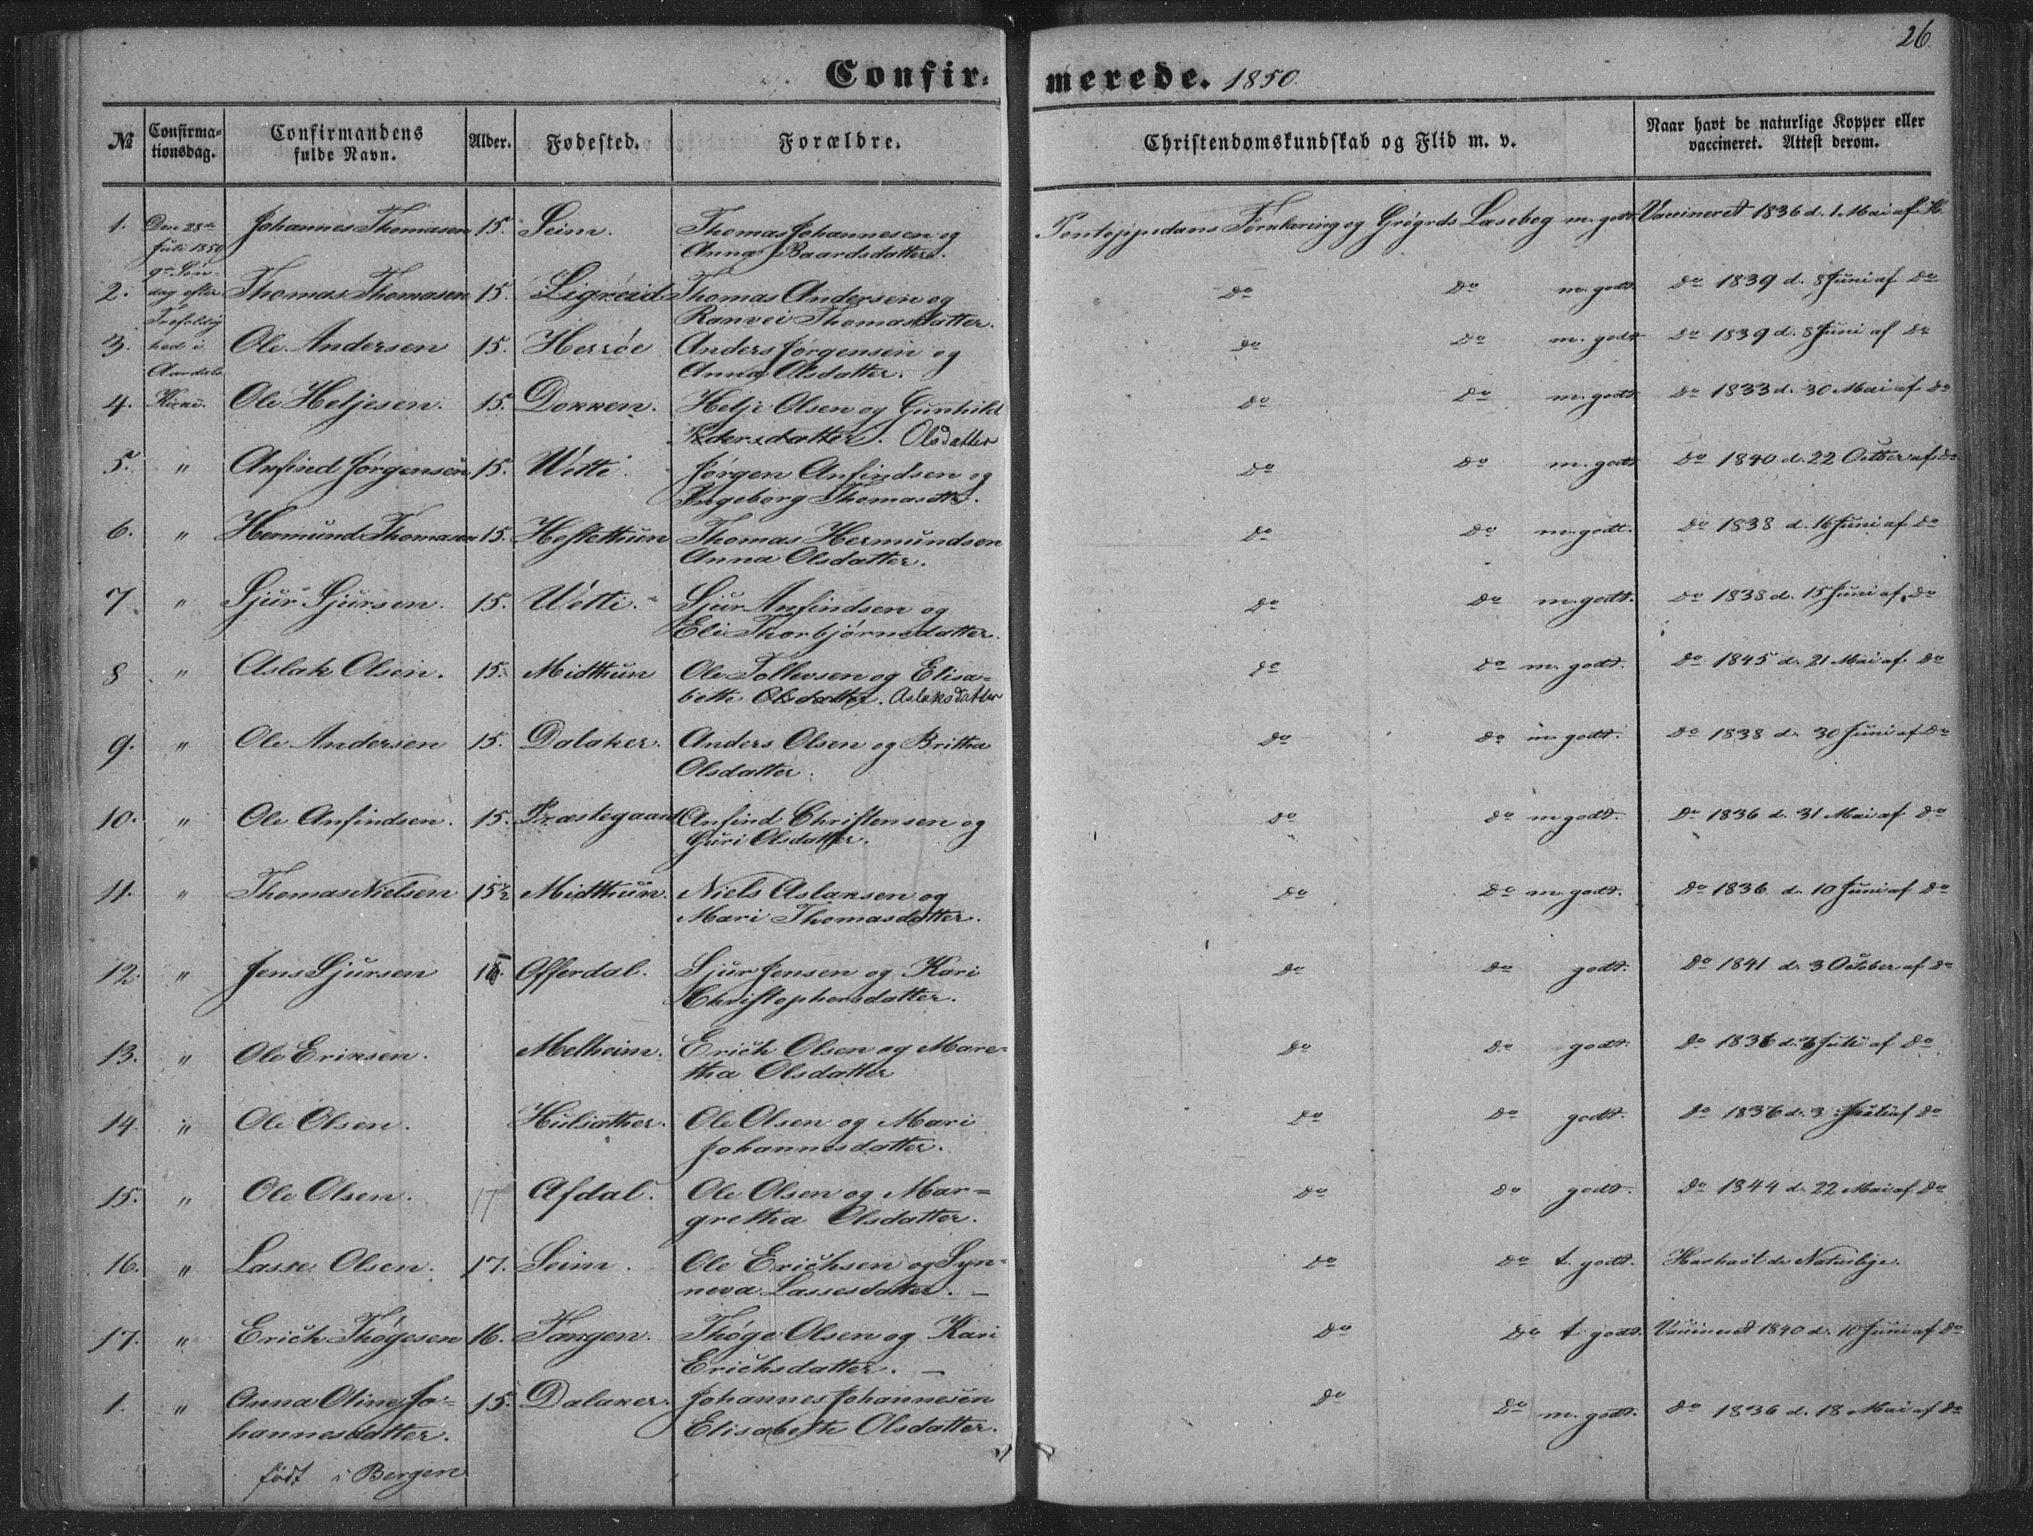 26
Confir= merede. 1850.
№ Confirma=tionsdag. Confirmandens fulde Navn. Alder. Fødested. Forældre. Christendomskundskab og Flid m. v. Naar havt de naturlige Kopper eller vaccineret. Attest derom.
1. Den 28de Johannes Thomasen 15. Seim. Thomas Johannesen og Pontoppidans Forklaring og Læsebog m. godt. Vaccineret 1836 d. 1 Mai af K.
Juli 1850 Anna Baardsdatter.
9de Søn=
2. dag efter Thomas Thomasen 15. Ligreid Thomas Andersen og do do m. godt. do 1839 d. 8 Juni af do
Trefoldig Ranvei Thomasdatter.
3. hed i Ole Andersen 15. Herröe Anders Jørgensen og do do m. godt do 1839 d. 8 Juni af do
Aardals Anna Olsdatter.
4. Kirke. Ole Heljesen. 15. Dokken. Helje Olsen og Gunhild do do m. godt do 1833 d. 30 Mai af do
Pedersdatter. Olsdatter
5. " Anfind Jørgensen 15. Wetti Jørgen Anfindsen og do do m. godt do 1840 d. 22 Octber af do
Ingeborg
6. " Hermund Thomasen 15. Hestethun Thomas Hermundsen do do m. godt. do 1838 d. 16 Juni af do
Anna Olsdatter.
7 " Sjur Sjursen. 15. Wetti. Sjur Anfindsen og do do m. godt. do 1838 d. 15 Juni af do
Eli Thorbjørnsdatter.
8 " Aslak Olsen. 15. Midthun Ole Tollevsen og Elisa= do do m. godt. do 1845 d. 21 Mai af do
bette Olsdatter. Aslaksdatter
9. " Ole Andersen 15. Dalaker. Anders Olsen og Britha do do m. godt. do 1838 d. 30 Juni af do
Olsdatter.
10. " Ole Anfindsen. 15. Præstegaard Anfind Christensen og do do m godt. do 1836 d. 31 Mai af do
Guri Olsdatter.
11. " Thomas Nielsen 15½ Midthun. Niels Aslaksen og do do m. godt. do 1836 d. 10 Juni af do
Mari Thomasdatter.
12. " Jens Sjursen Offerdal. Sjur Jensen og Kari do do godt. do 1841 d. 3 October af do
Christophersdatter.
13. " Ole Eriksen. Melheim. Erich Olsen og Mare= do do godt. do 1836 d. 3 Juli af do
tha Olsdatter
14. " Ole Olsen. Hulsæther. Ole Olsen og Mari do do godt. do 1836 d. 3 Juli af do
Johannesdatter.
15. " Ole Olsen. 17 Afdal. Ole Olsen og Mar= do do godt. do 1844 d. 22 Mai af do
gretha Olsdatter.
16. " Lasse Olsen. 17. Seim. Ole Erichsen og Syn= do do t. godt. Har havt de Naturlige.
neva Lassesdatter. —
17. " Erich Thøgesen 16. Tangen. Thøge Olsen og Kari do do t. godt. Vaccineret 1840 d. 10 Juni af do
Erichsdatter. —
1. " Anna Oline Jo= 15. Dalaker. Johannes Johannesen do do m. godt. do 1836 d. 18 Mai af do
hannesdatter. Elisabeth Olsdatter.
født i Bergen